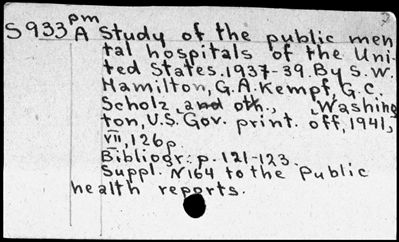 pm
S933 A study of the public men
tal hospitals of the Uni-
ted States.1937-39.By S.W.
Hamilton, G.A.Kempf, G.C.
Scholz, and oth., Washing
ton, U.S. Gov. print. off, 1941,
VII, 126p.
Bibliogr: p. 121-123.
Suppl. N164 to the Public
health reports.